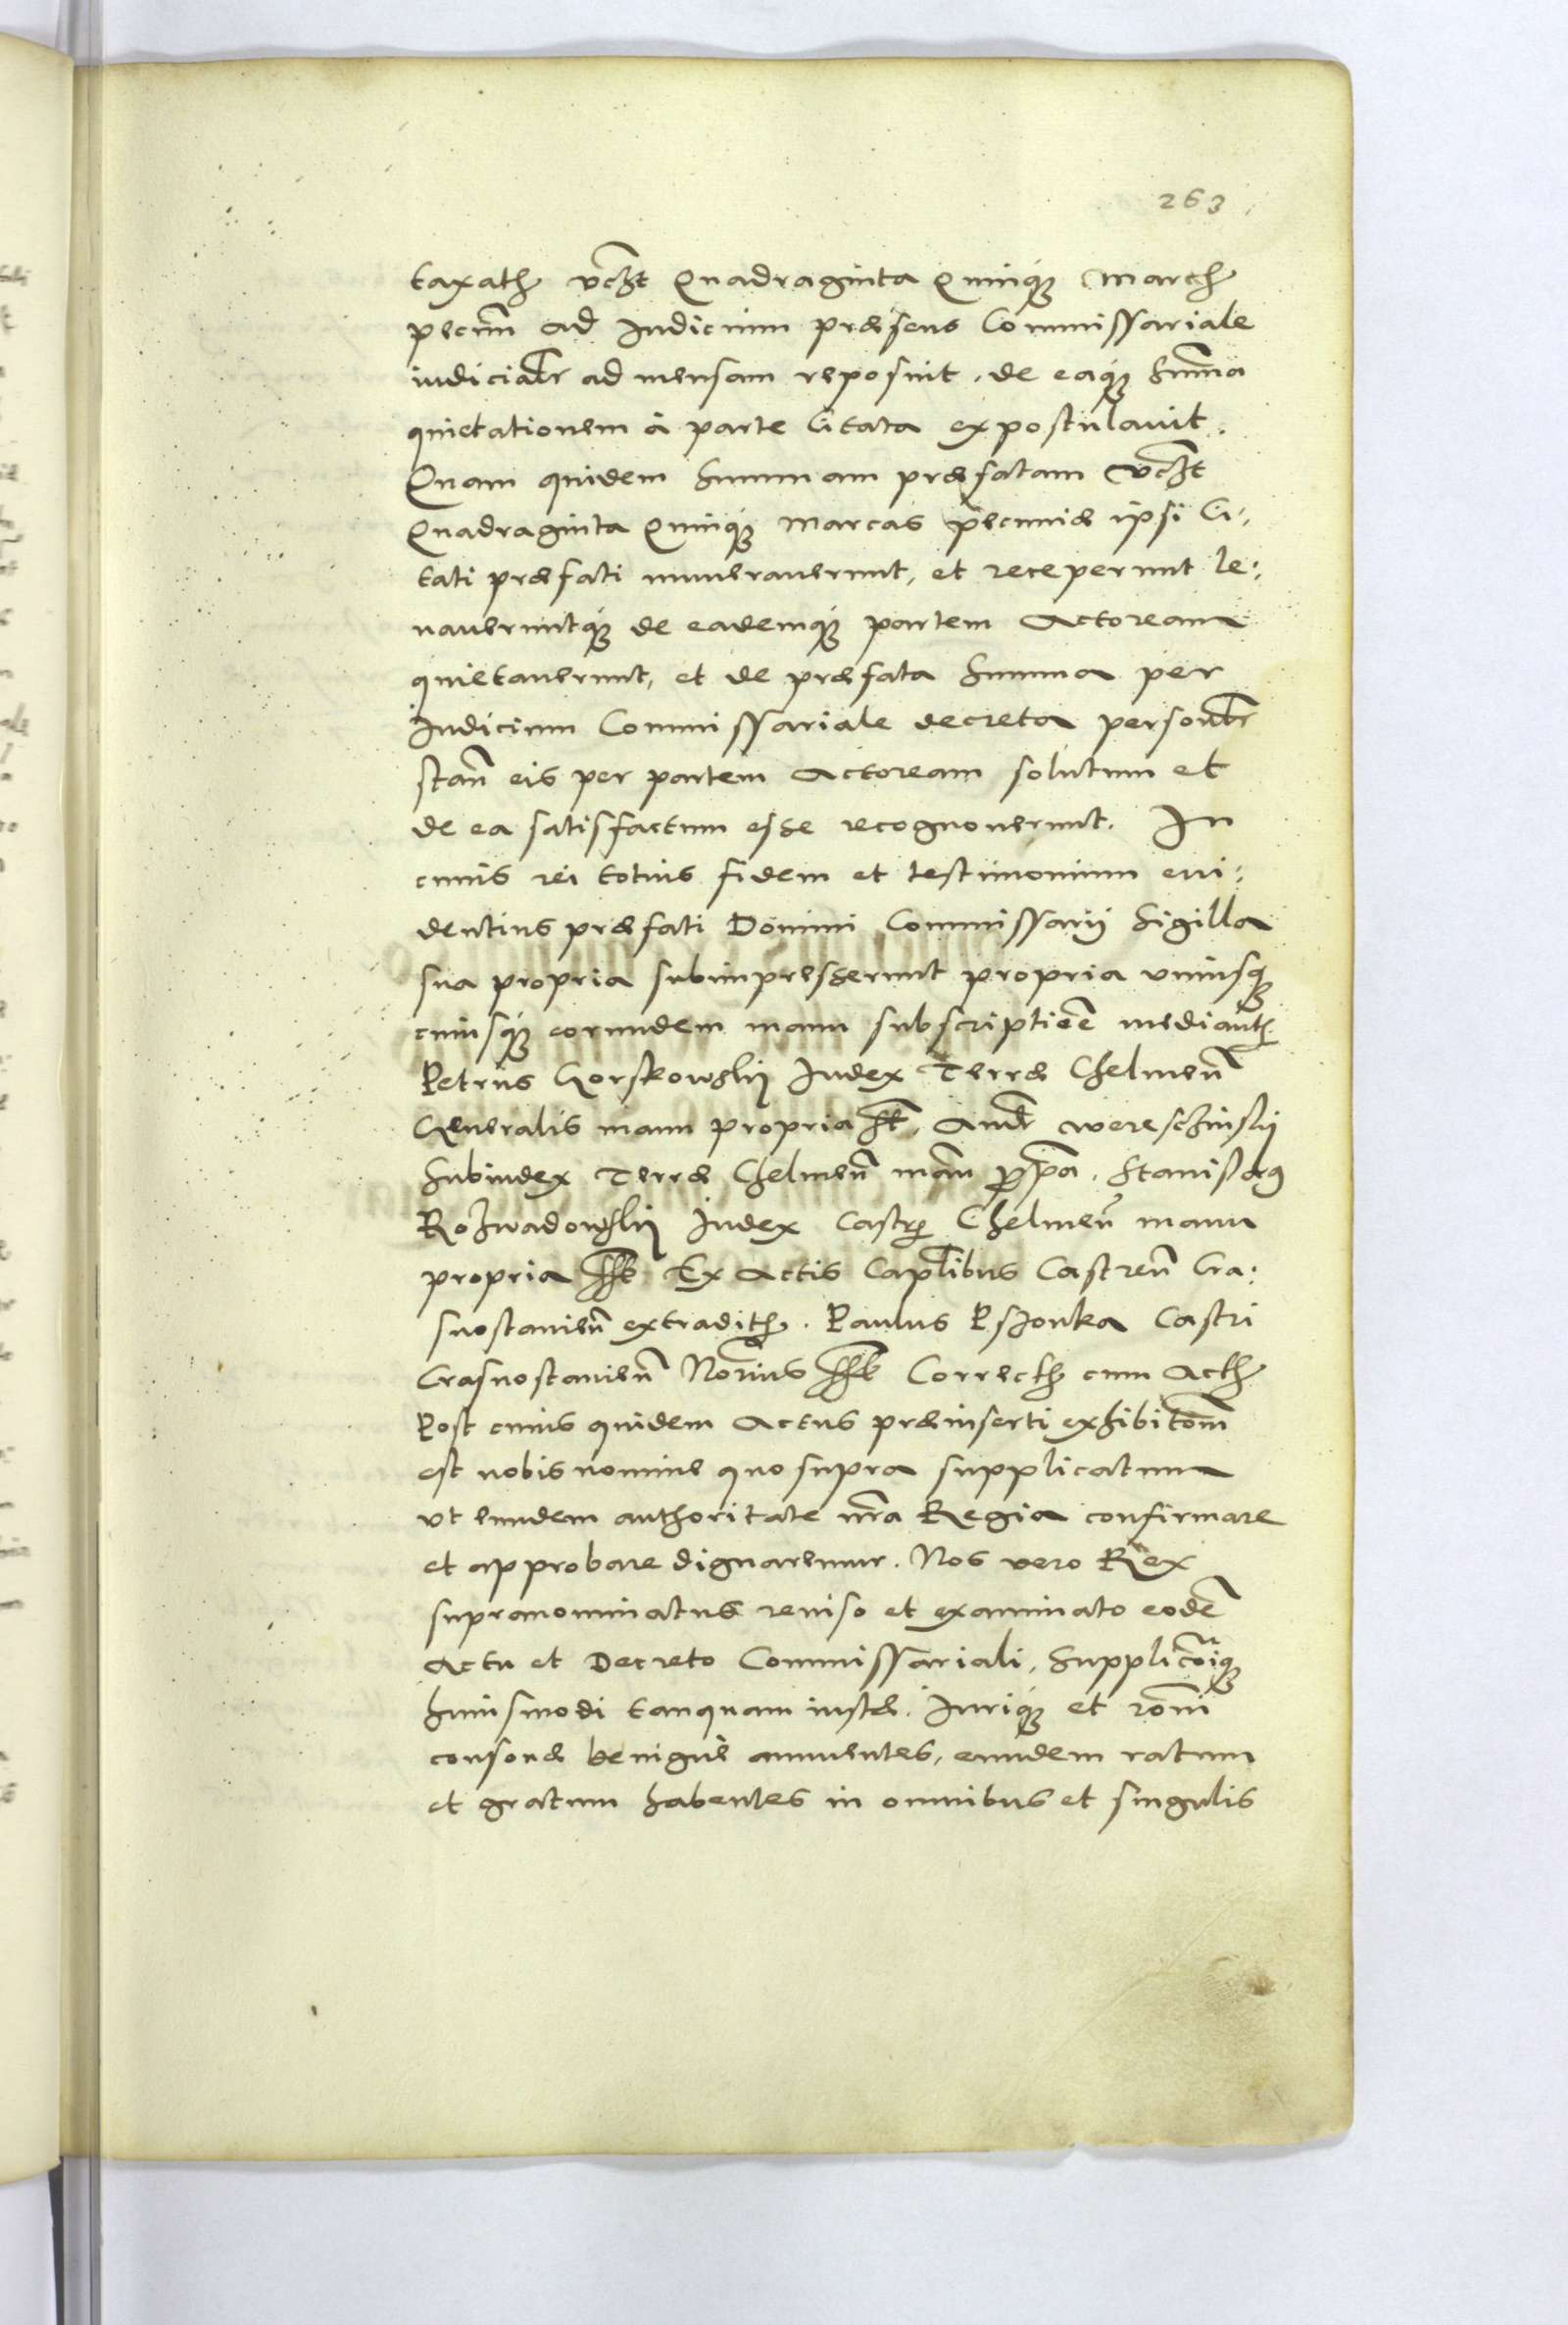 263
taxatam vczt Quadraginta Quinque Marcharum
pecunm ad Iudicium præsens Commissariale
iudicialr ad mensam reposuit, de eaque Summa
quietationem à parte Citata expostulavit.
Quam quidem Summam præfatam vczt
Quadraginta Quinque Marcas pecuniæ ipsi Ci-
tati præfati numeraverunt, et receperunt le-
vaveruntque de eademque partem Actoream
quietaverunt, et de præfata Summa per
Iudicium Commissariale decreta personalr
stan eis per partem Actoream solutum et
de ea satisfactum esse recognoverunt. In
cuius rei totius fidem et testimonium evi-
dentius præfati Domini Commissarij Sigilla
sua propria subimpresserunt propria uniusque
cuiusque eorundem manu subscriptiõe mediante
Petrus Gorskowskij Iudex Terræ Chelmeñ
Generalis manu propria sst, Andr Wereschinskij
Subiudex Terræ Chelmeñ manu propria. Stanislaus
Rozwadowskij Iudex Castr Chelmeñ manu
propria sst Ex Actis Captlibus Castreñ Cra-
snostavieñ extradit. Paulus Psonka Castri
Crasnostavieñ Notrius sst Correct cum Act
Post cuius quidem Actus præinserti exhibitom
est nobis nomine quo supra supplicatum
vt eundem authoritate nra Regia confirmare
et approbare dignaremur. Nos vero Rex
supranominatus reviso et examinato eodẽ
Actu et Decreto Commissariali, Supplicõique
huiusmodi tanquam iustæ. Iurique et rõni
consonæ benignè annuentes, eundem ratum
et gratum habentes in omnibus et singulis